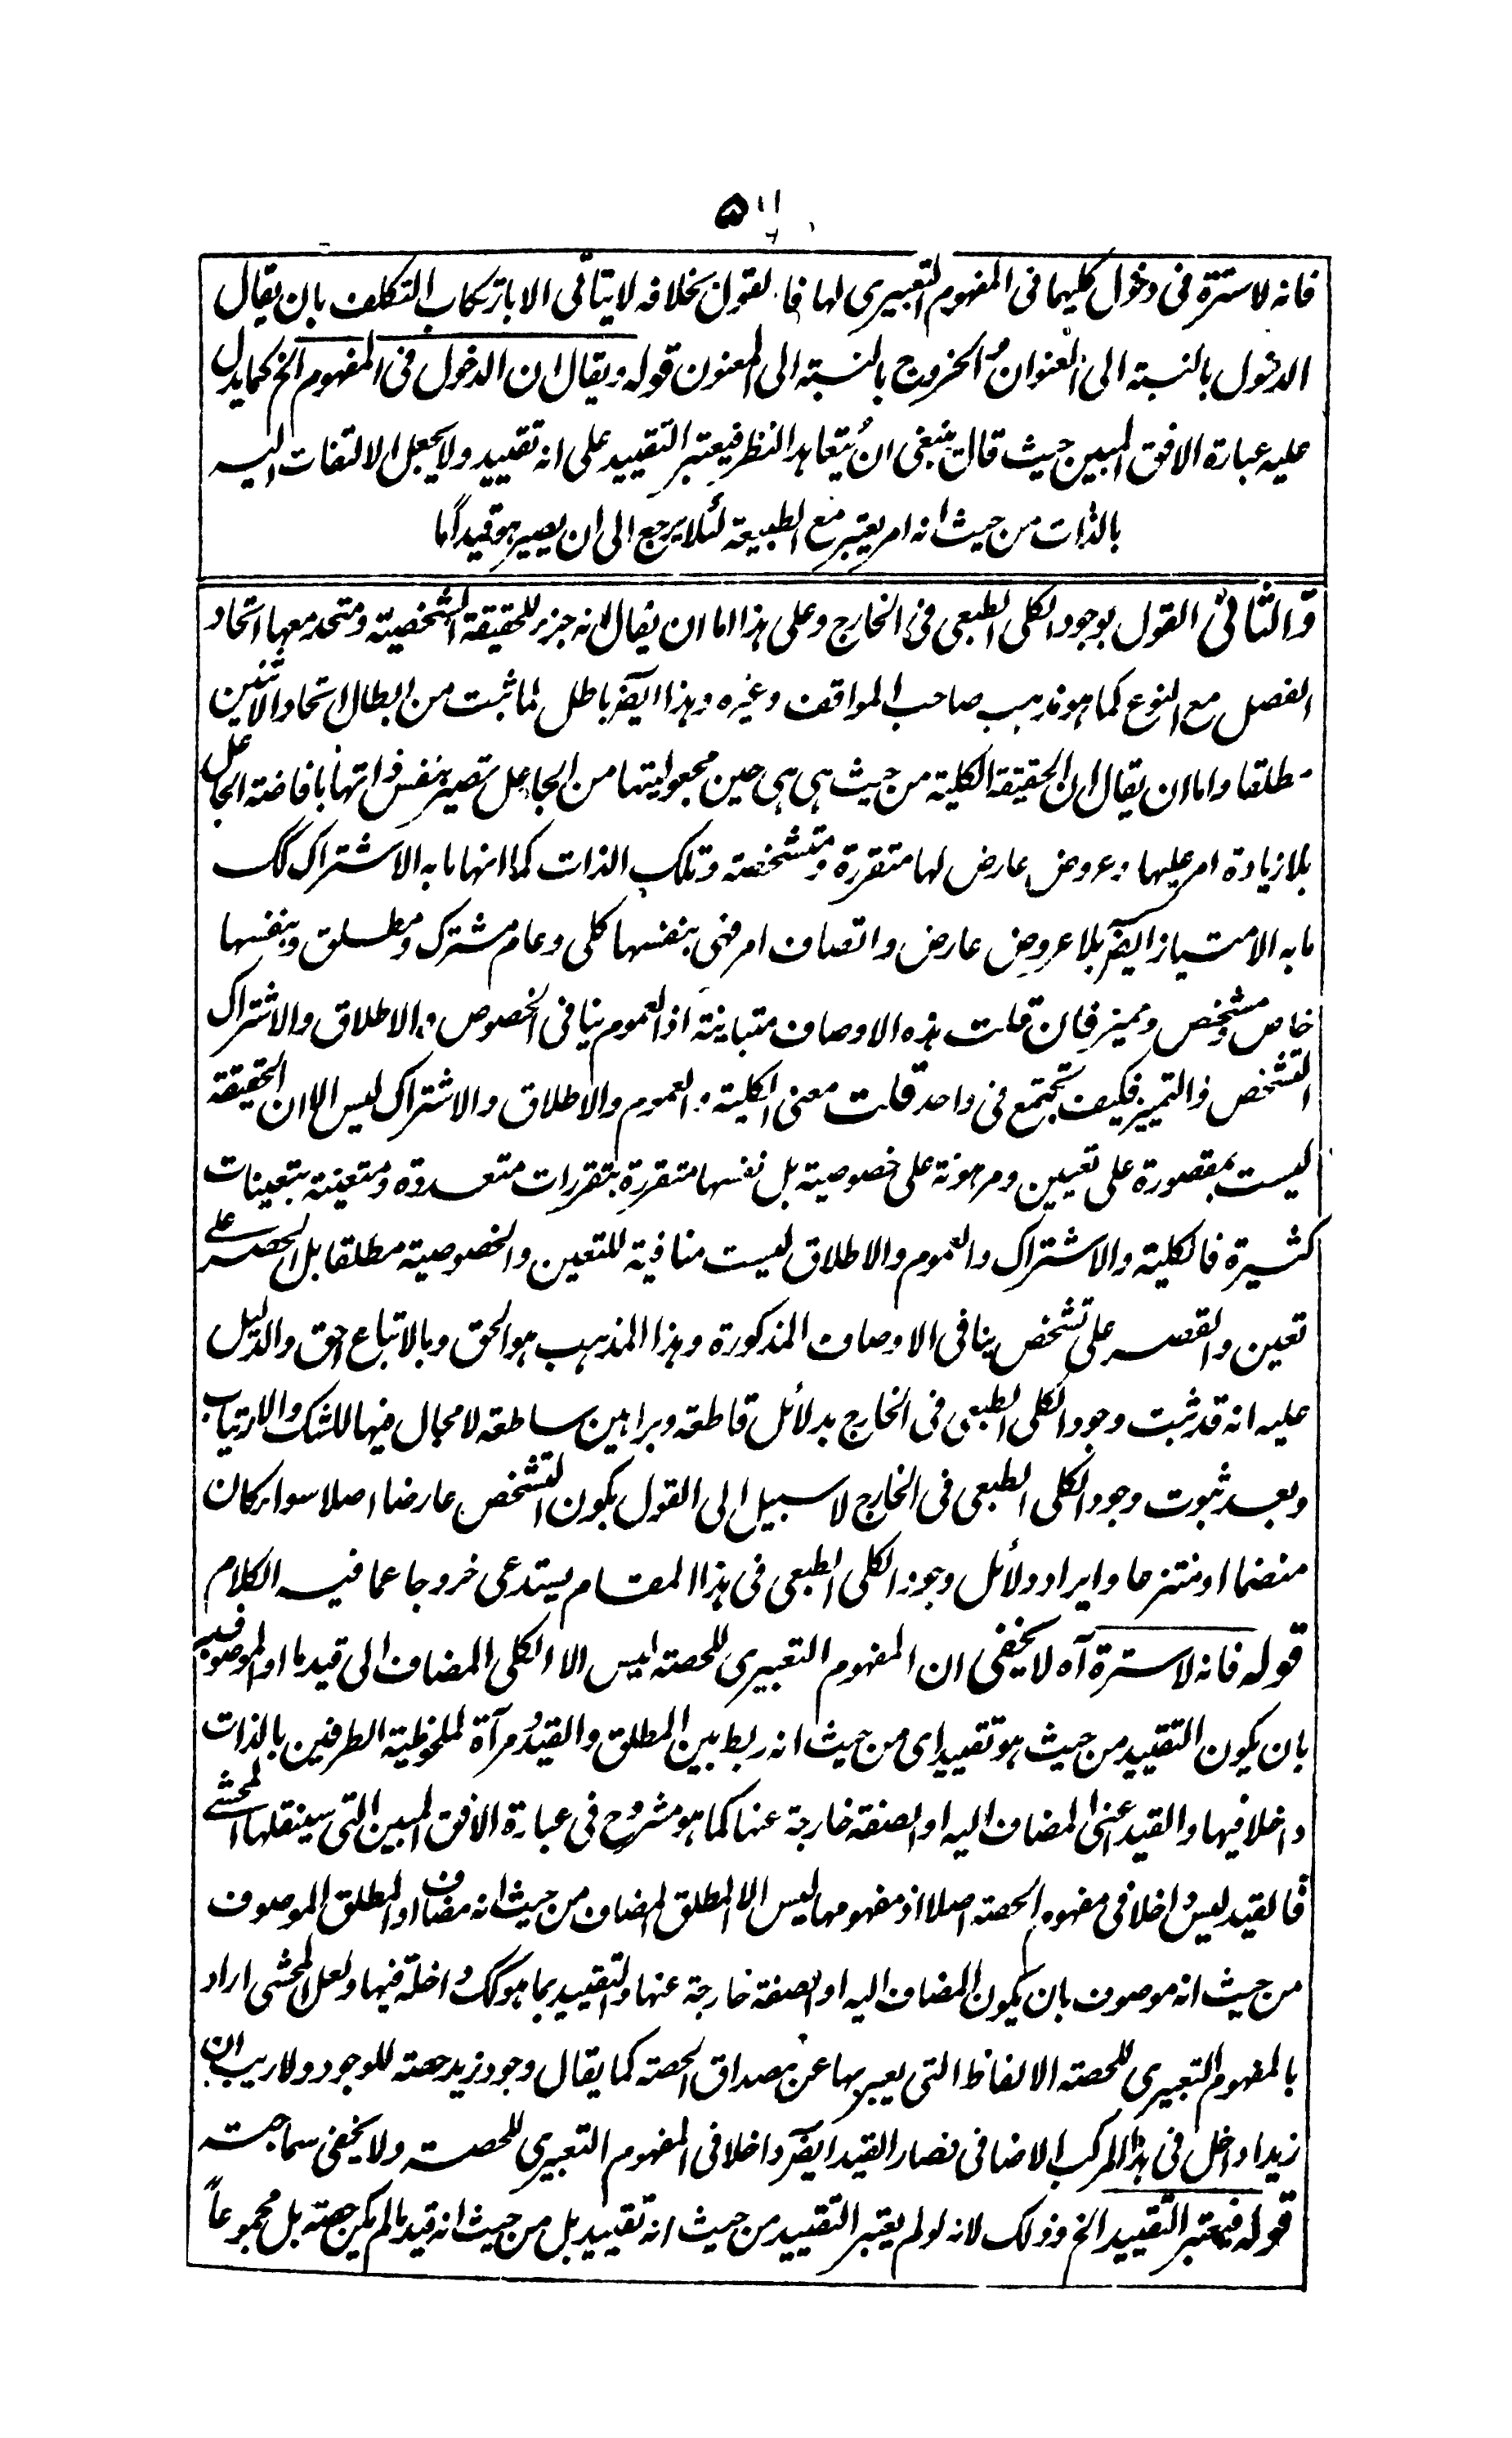 ۵
فانه لا سترة فى دخول كليهما فى المفهوم التعبيرى لها فالقول بخلافه لا يتأتى الا بارتكاب التكلف بان يقال
الدخول بالنسبة الى العنوان والخروج بالنسبة الى المعنون قوله ويقال ان الدخول فى المفهوم الخ كما يدل
عليه عبارة الافق المبين حيث قال ينبغى ان يتعاهد النظر فيعتبر التقييد على انه تقييد ولا يجعل الالتفات اليه
بالذات من حيث انه امر يعتبر مع الطبيعة لئلا يرجع الى ان يصير هو قيدا ما
والثانى القول بوجود الكلى الطبعى فى الخارج وعلى هذا اما ان يقال انه جزء للحقيقة الشخصية ومتحد معها اتحاد
الفصل مع النوع كما هو مذهب صاحب المواقف وغيره وهذا ايضر باطل لما ثبت من ابطال اتحاد الاثنين
مطلقا واما ان يقال ان الحقيقة الكلية من حيث هى هى حين مجعوليتها من الجاعل تصير بنفس ذاتها بافاضة الجاعل
بلا زيادة امر عليها وعروض عارض لها متقررة ومتشخصة وتلك الذات كما انها ما به الاشتراك كك
ما به الامتياز ايضر بلا عروض عارض واتصاف امر فهى بنفسها كلى وعام مشترك ومطلق وبنفسها
خاص متشخص ومميز فان قلت هذه الاوصاف متباينة اذ العموم ينافى الخصوص والاطلاق والاشتراك
التشخص والتميز فكيف تجتمع فى واحد قلت معنى الكلية والعموم والاطلاق والاشتراك ليس الا ان الحقيقة
ليست بمقصورة على تعيين ومرهونة على خصوصية بل نفسها متقررة بتقررات متعددة ومتعينة بتعينات
كثيرة فالكلية والاشتراك والعموم والاطلاق ليست منافية للتعين والخصوصية مطلقا بل الحصر على
تعين والقصر على تشخص ينافى الاوصاف المذكورة وهذا المذهب هو الحق وبالاتباع احق والدليل
عليه انه قد ثبت وجود الكلى الطبعى فى الخارج بدلائل قاطعة وبراهين ساطعة لا مجال فيها للشك والارتياب
وبعد ثبوت وجود الكلى الطبعى فى الخارج لا سبيل الى القول بكون التشخص عارضا اصلا سواء كان
منضما او منتزعا وايراد دلائل وجود الكلى الطبعى فى هذا المقام يستدعى خروجا عما فيه الكلام
قوله فانه لا سترة آه لا يخفى ان المفهوم التعبيرى للحصة ليس الا الكلى المضاف الى قيد ما او الموصوف به
بان يكون التقييد من حيث هو تقييد اى من حيث انه ربط بين المطلق والقيد ومرآة لملحوظية الطرفين بالذات
داخلا فيها والقيد اعنى المضاف اليه او الصفة خارجة عنها كما هو مشروح فى عبارة الافق المبين التى سينقلها المحشى
فالقيد ليس داخلا فى مفهوم الحصة اصلا اذ مفهومها ليس الا المطلق المضاف من حيث انه مضاف او المطلق الموصوف
من حيث انه موصوف بان يكون المضاف اليه او الصفة خارجة عنها والتقييد بما هو كك داخلة فيها ولعل المحشى اراد
بالمفهوم التعبيرى للحصة الالفاظ التى يعبر بها عن مصداق الحصة كما يقال وجود زيد حصة للوجود ولا ريب ان
زيدا داخل فى هذا المركب الاضافى فصار القيد ايضر داخلا فى المفهوم التعبيرى للحصة ولا يخفى سماجته
قوله فيعتبر التقييد الخ وذلك لانه لو لم يعتبر التقييد من حيث انه تقييد بل من حيث انه قيد ما لم يكن حصة بل مجموعاً